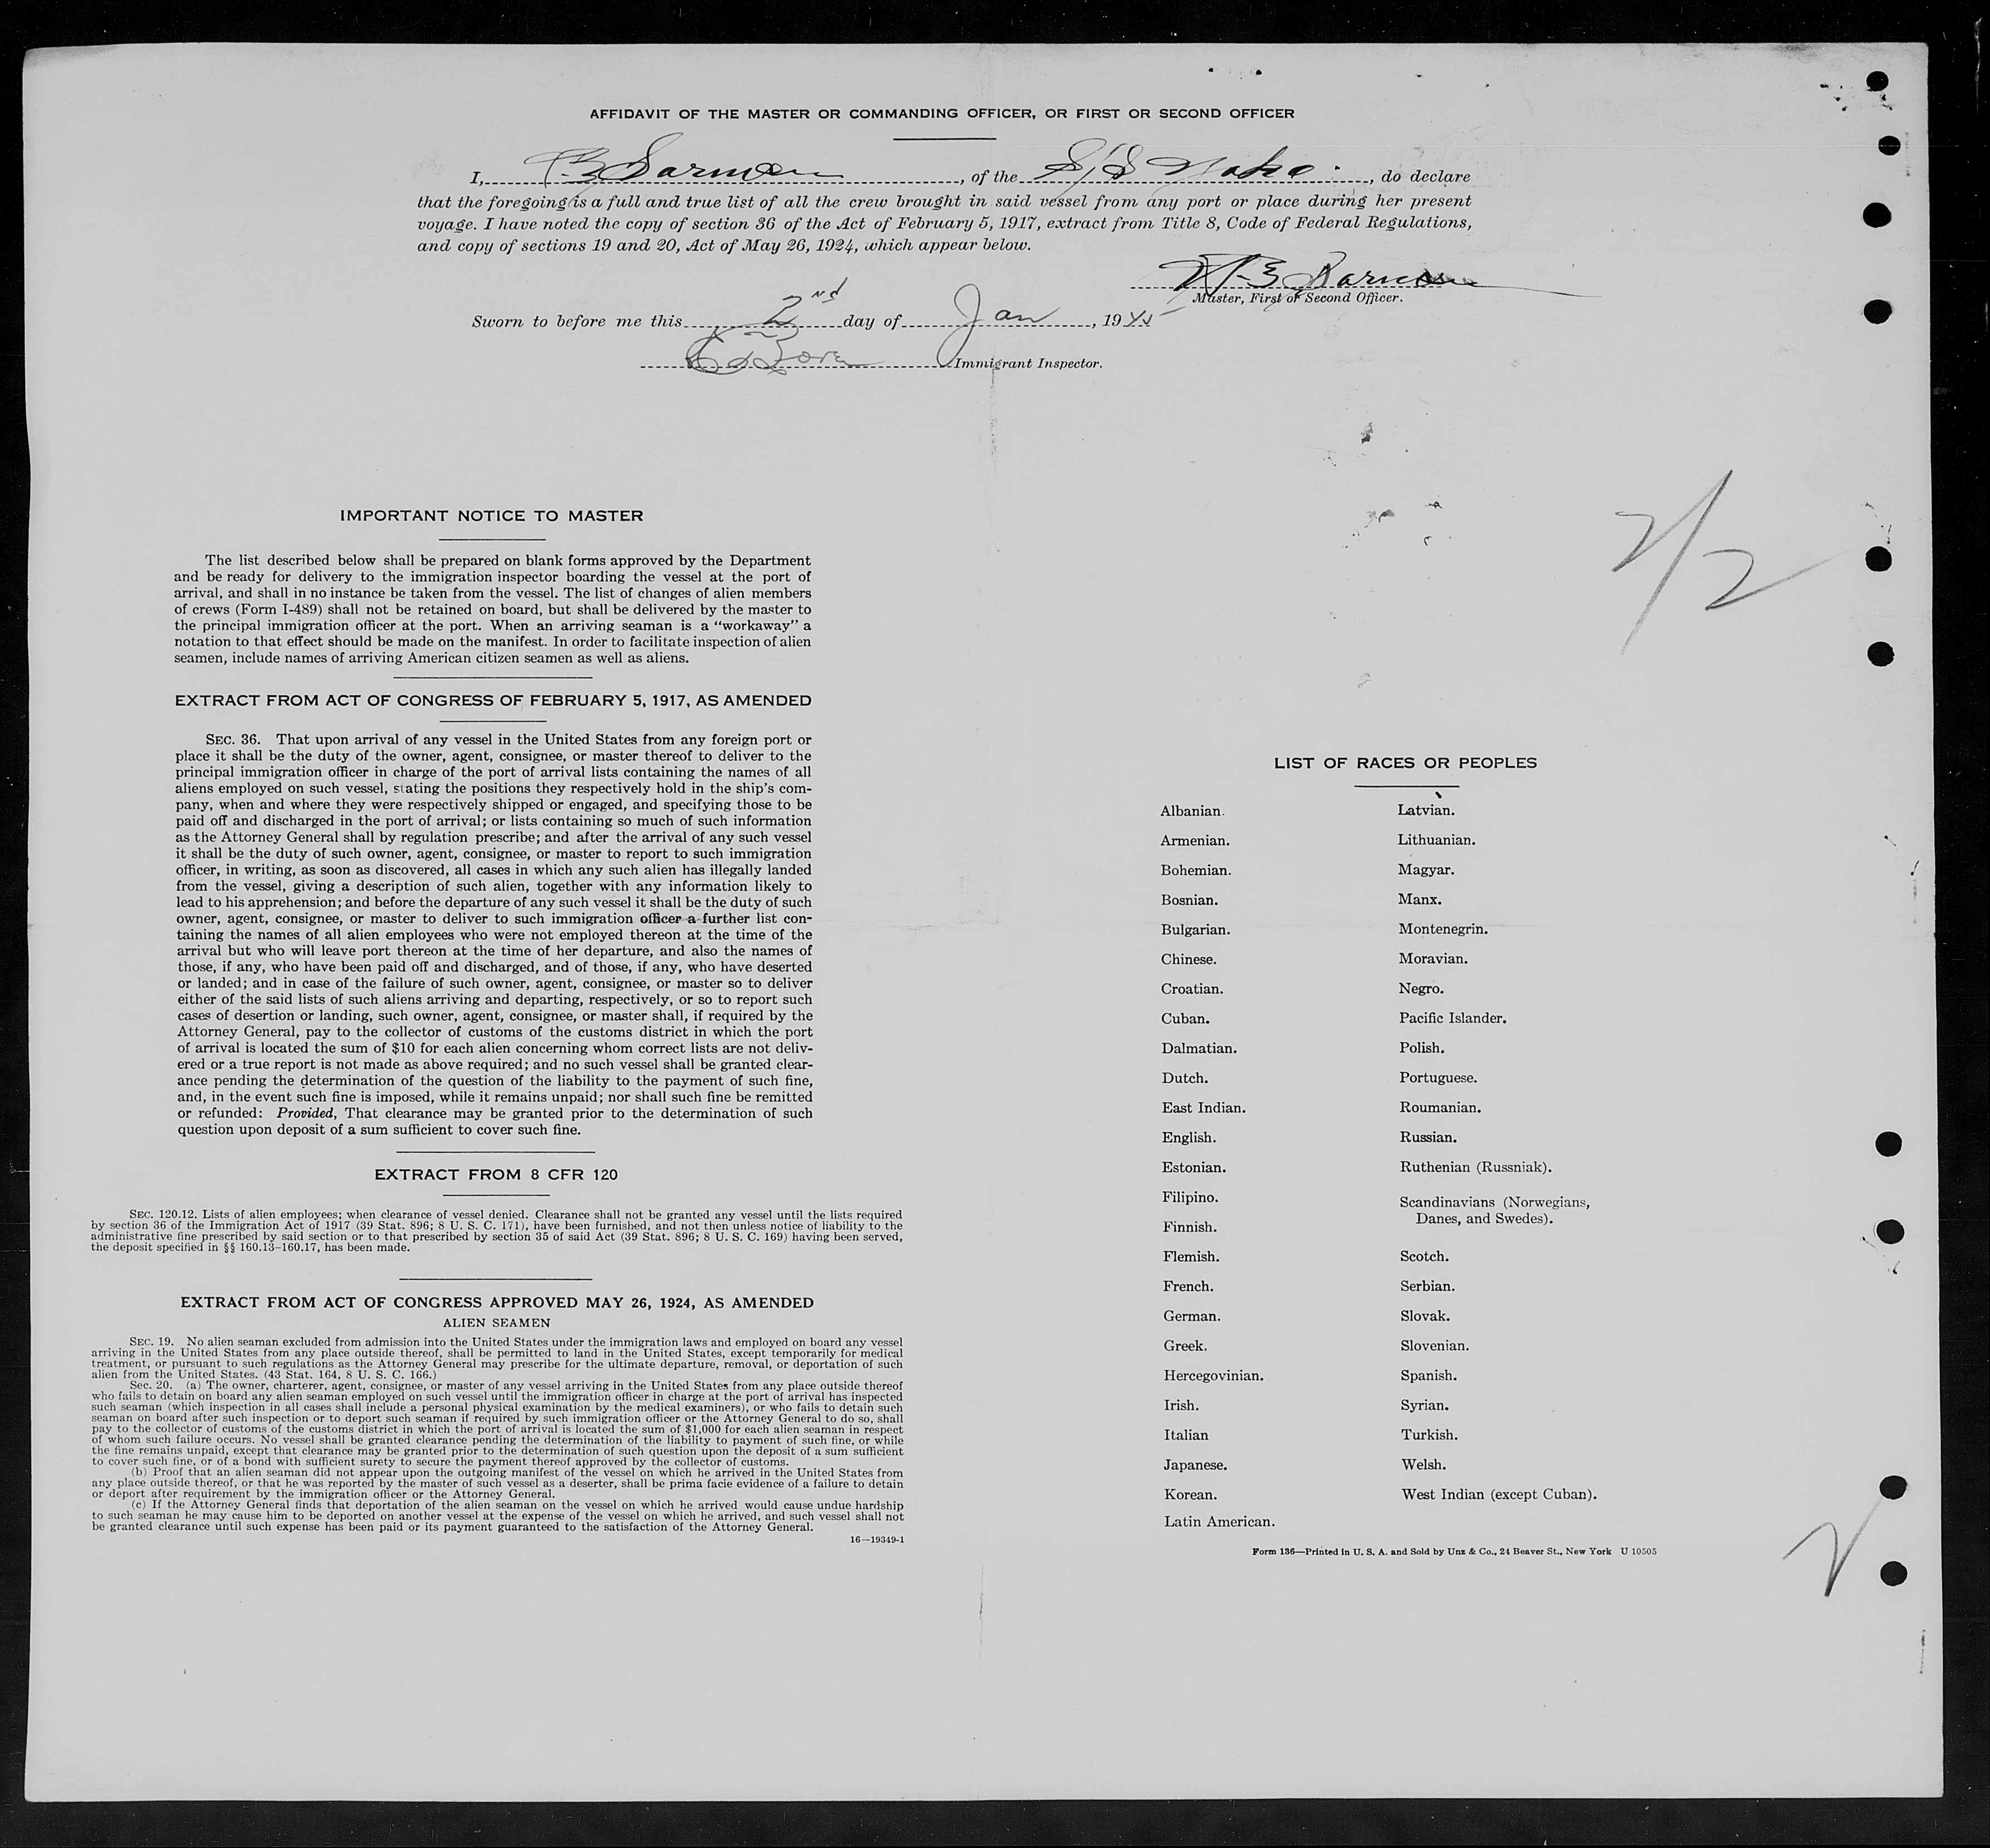 AFFIDAVIT OF THE MASTER OR COMMANDING OFFICER, OR FIRST OR SECOND OFFICER
I, , of the S/S , do declare
that the foregoing is a full and true list of all the crew brought in said vessel from any port or place during her present
voyage. I have noted the copy of section 36 of the Act of February 5, 1917, extract from Title 8, Code of Federal Regulations,
and copy of sections 19 and 20, Act of May 26, 1924, which appear below.
Master, First or Second Officer.
Sworn to before me this 2nd day of Jan, 1945
Immigrant Inspector.
2/2
IMPORTANT NOTICE TO MASTER
The list described below shall be prepared on blank forms approved by the Department
and be ready for delivery to the immigration inspector boarding the vessel at the port of
arrival, and shall in no instance be taken from the vessel. The list of changes of alien members
of crews (Form I-489) shall not be retained on board, but shall be delivered by the master to
the principal immigration officer at the port. When an arriving seaman is a “workaway” a
notation to that effect should be made on the manifest. In order to facilitate inspection of alien
seamen, include names of arriving American citizen seamen as well as aliens.
EXTRACT FROM ACT OF CONGRESS OF FEBRUARY 5, 1917, AS AMENDED
SEC. 36. That upon arrival of any vessel in the United States from any foreign port or
place it shall be the duty of the owner, agent, consignee, or master thereof to deliver to the
principal immigration officer in charge of the port of arrival lists containing the names of all
aliens employed on such vessel, stating the positions they respectively hold in the ship's com-
pany, when and where they were respectively shipped or engaged, and specifying those to be
paid off and discharged in the port of arrival; or lists containing so much of such information
as the Attorney General shall by regulation prescribe; and after the arrival of any such vessel
it shall be the duty of such owner, agent, consignee, or master to report to such immigration
officer, in writing, as soon as discovered, all cases in which any such alien has illegally landed
from the vessel, giving a description of such alien, together with any information likely to
lead to his apprehension; and before the departure of any such vessel it shall be the duty of such
owner, agent, consignee, or master to deliver to such immigration officer a further list con-
taining the names of all alien employees who were not employed thereon at the time of the
arrival but who will leave port thereon at the time of her departure, and also the names of
those, if any, who have been paid off and discharged, and of those, if any, who have deserted
or landed; and in case of the failure of such owner, agent, consignee, or master so to deliver
either of the said lists of such aliens arriving and departing, respectively, or so to report such
cases of desertion or landing, such owner, agent, consignee, or master shall, if required by the
Attorney General, pay to the collector of customs of the customs district in which the port
of arrival is located the sum of $10 for each alien concerning whom correct lists are not deliv-
ered or a true report is not made as above required; and no such vessel shall be granted clear-
ance pending the determination of the question of the liability to the payment of such fine,
and, in the event such fine is imposed, while it remains unpaid; nor shall such fine be remitted
or refunded: Provided, That clearance may be granted prior to the determination of such
question upon deposit of a sum sufficient to cover such fine.
EXTRACT FROM 8 CFR 120
SEC. 120.12. Lists of alien employees; when clearance of vessel denied. Clearance shall not be granted any vessel until the lists required
by section 36 of the Immigration Act of 1917 (39 Stat. 896; 8 U. S. C. 171), have been furnished, and not then unless notice of liability to the
administrative fine prescribed by said section or to that prescribed by section 35 of said Act (39 Stat. 896; 8 U. S. C. 169) having been served,
the deposit specified in §§ 160.13–160.17, has been made.
EXTRACT FROM ACT OF CONGRESS APPROVED MAY 26, 1924, AS AMENDED
ALIEN SEAMEN
SEC. 19. No alien seaman excluded from admission into the United States under the immigration laws and employed on board any vessel
arriving in the United States from any place outside thereof, shall be permitted to land in the United States, except temporarily for medical
treatment, or pursuant to such regulations as the Attorney General may prescribe for the ultimate departure, removal, or deportation of such
alien from the United States. (43 Stat. 164, 8 U. S. C. 166.)
Sec. 20. (a) The owner, charterer, agent, consignee, or master of any vessel arriving in the United States from any place outside thereof
who fails to detain on board any alien seaman employed on such vessel until the immigration officer in charge at the port of arrival has inspected
such seaman (which inspection in all cases shall include a personal physical examination by the medical examiners), or who fails to detain such
seaman on board after such inspection or to deport such seaman if required by such immigration officer or the Attorney General to do so, shall
pay to the collector of customs of the customs district in which the port of arrival is located the sum of $1,000 for each alien seaman in respect
of whom such failure occurs. No vessel shall be granted clearance pending the determination of the liability to payment of such fine, or while
the fine remains unpaid, except that clearance may be granted prior to the determination of such question upon the deposit of a sum sufficient
to cover such fine, or of a bond with sufficient surety to secure the payment thereof approved by the collector of customs.
(b) Proof that an alien seaman did not appear upon the outgoing manifest of the vessel on which he arrived in the United States from
any place outside thereof, or that he was reported by the master of such vessel as a deserter, shall be prima facie evidence of a failure to detain
or deport after requirement by the immigration officer or the Attorney General.
(c) If the Attorney General finds that deportation of the alien seaman on the vessel on which he arrived would cause undue hardship
to such seaman he may cause him to be deported on another vessel at the expense of the vessel on which he arrived, and such vessel shall not
be granted clearance until such expense has been paid or its payment guaranteed to the satisfaction of the Attorney General.
16—19349-1
LIST OF RACES OR PEOPLES
Albanian.
Armenian.
Bohemian.
Bosnian.
Bulgarian.
Chinese.
Croatian.
Cuban.
Dalmatian.
Dutch.
East Indian.
English.
Estonian.
Filipino.
Finnish.
Flemish.
French.
German.
Greek.
Hercegovinian.
Irish.
Italian
Japanese.
Korean.
Latin American.
Latvian.
Lithuanian.
Magyar.
Manx.
Montenegrin.
Moravian.
Negro.
Pacific Islander.
Polish.
Portuguese.
Roumanian.
Russian.
Ruthenian (Russniak).
Scandinavians (Norwegians,
Danes, and Swedes).
Scotch.
Serbian.
Slovak.
Slovenian.
Spanish.
Syrian.
Turkish.
Welsh.
West Indian (except Cuban).
Form 136—Printed in U. S. A. and Sold by Unz & Co., 24 Beaver St., New York U 10505